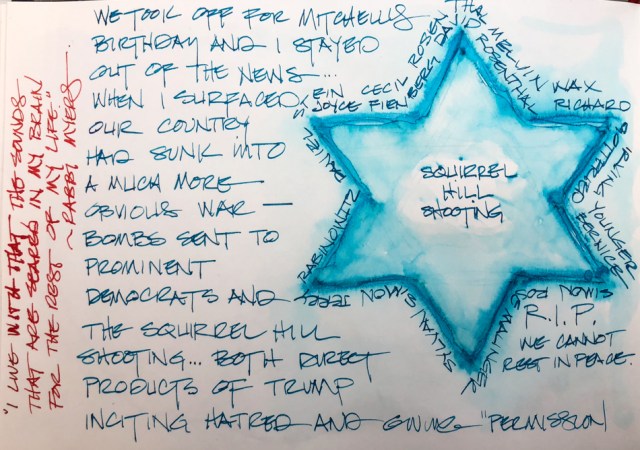 WE TOOK OFF FOR MITCHELLS
BIRTHDAY AND I STAYED
OUT OF THE NEWS...
WHEN I SURFACED
OUR COUNTRY
HAD SUNK INTO
A MUCH MORE
OBVIOUS WAR —
BOMBS SENT TO
PROMINENT
DEMOCRATS AND
THE SQUIRREL HILL
SHOOTING... BOTH DIRECT
PRODUCTS OF TRUMP
INCITING HATRED AND GIVING "PERMISSION
"I LIVE WITH THAT THE SOUNDS
THAT ARE SEARED IN MY BRAIN
FOR THE REST OF MY LIFE."
~RABBI MYERS
SQUIRREL
HILL
SHOOTING
JOYCE FIEN
ROSEN
BERG
CECIL
ROSENTHAL
MELVIN WAX
RICHARD
GOTTFRIED
IRVING YOUNGER
BERNICE
SIMON ROSE
MALLINGER
SYLVAN SIMON
RABINOWITZ
DANIEL
R.I.P.
WE CANNOT
REST IN PEACE.